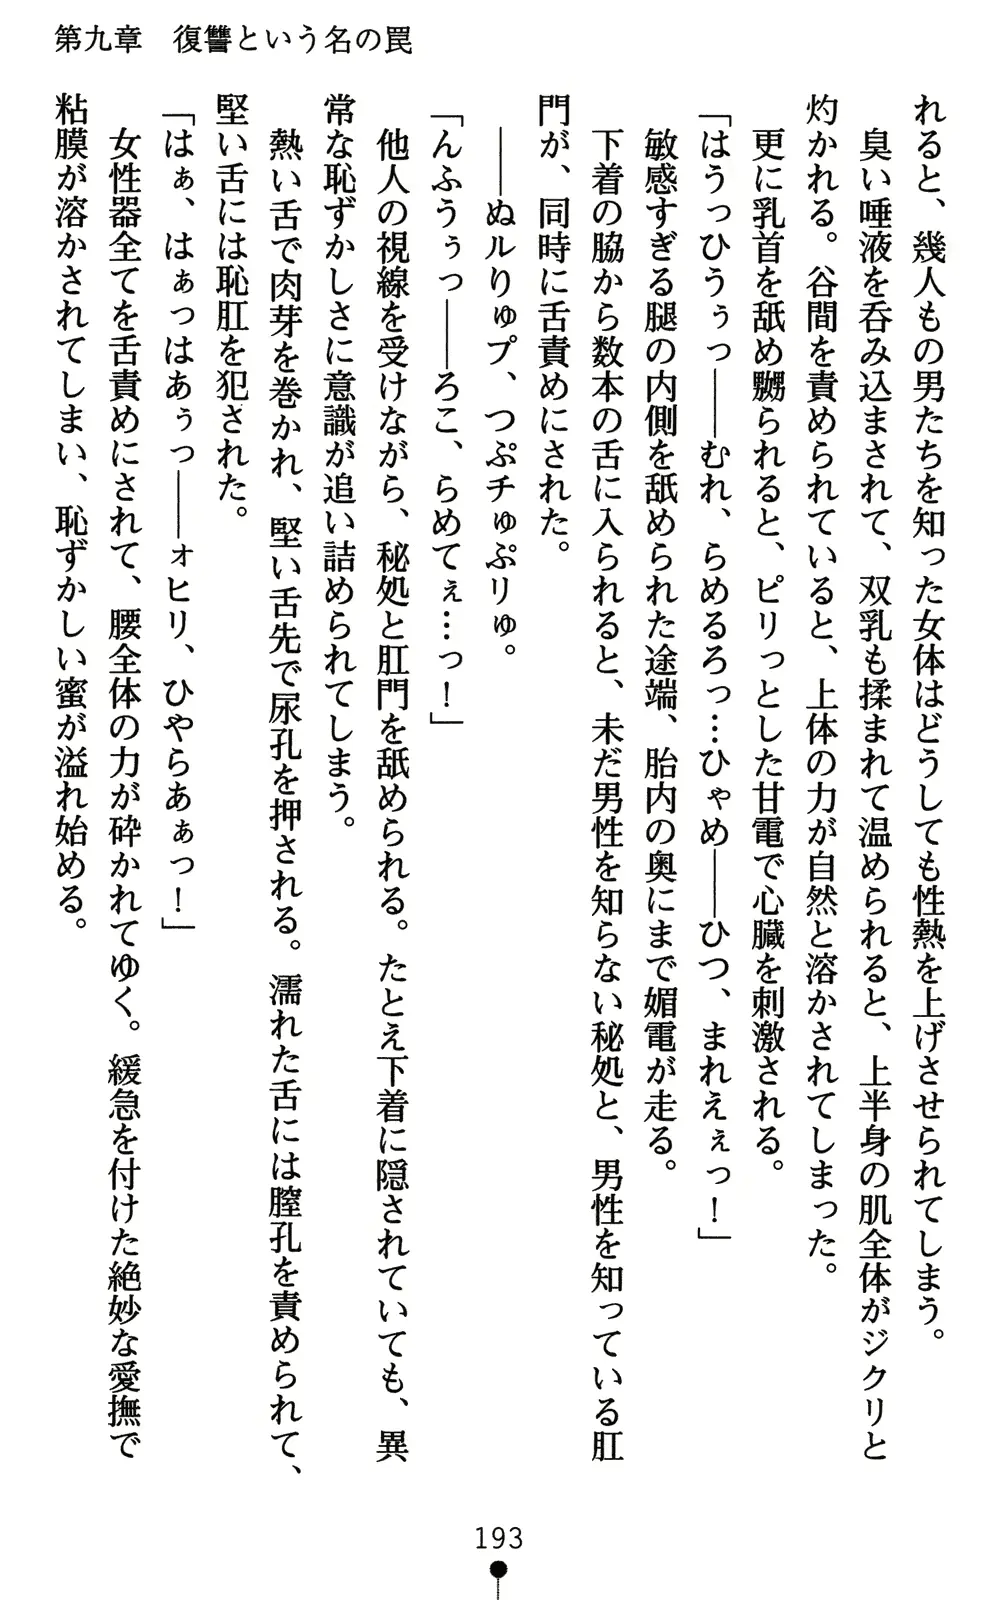 第九章　復讐という名の罠
れると、幾人もの男たちを知った女体はどうしても性熱を上げさせられてしまう。
臭い唾液を呑み込まされて、双乳も揉まれて温められると、上半身の肌全体がジクリと
灼かれる。谷間を責められていると、上体の力が自然と溶かされてしまった。
更に乳首を舐め嬲られると、ピリっとした甘電で心臓を刺激される。
「はうっひうぅっ――むれ、らめるろっ…ひゃめ――ひつ、まれえぇっ！」
敏感すぎる腿の内側を舐められた途端、胎内の奥にまで媚電が走る。
下着の脇から数本の舌に入られると、未だ男性を知らない秘処と、男性を知っている肛
門が、同時に舌責めにされた。
――ぬルりゅプ、つぷチゅぷリゅ。
「んふうぅっ――ろこ、らめてぇ…っ！」
他人の視線を受けながら、秘処と肛門を舐められる。たとえ下着に隠されていても、異
常な恥ずかしさに意識が追い詰められてしまう。
熱い舌で肉芽を巻かれ、堅い舌先で尿孔を押される。濡れた舌には膣孔を責められて、
堅い舌には恥肛を犯された。
「はぁ、はぁっはあぅっ――ォヒリ、ひやらあぁっ！」
女性器全てを舌責めにされて、腰全体の力が砕かれてゆく。緩急を付けた絶妙な愛撫で
粘膜が溶かされてしまい、恥ずかしい蜜が溢れ始める。
193